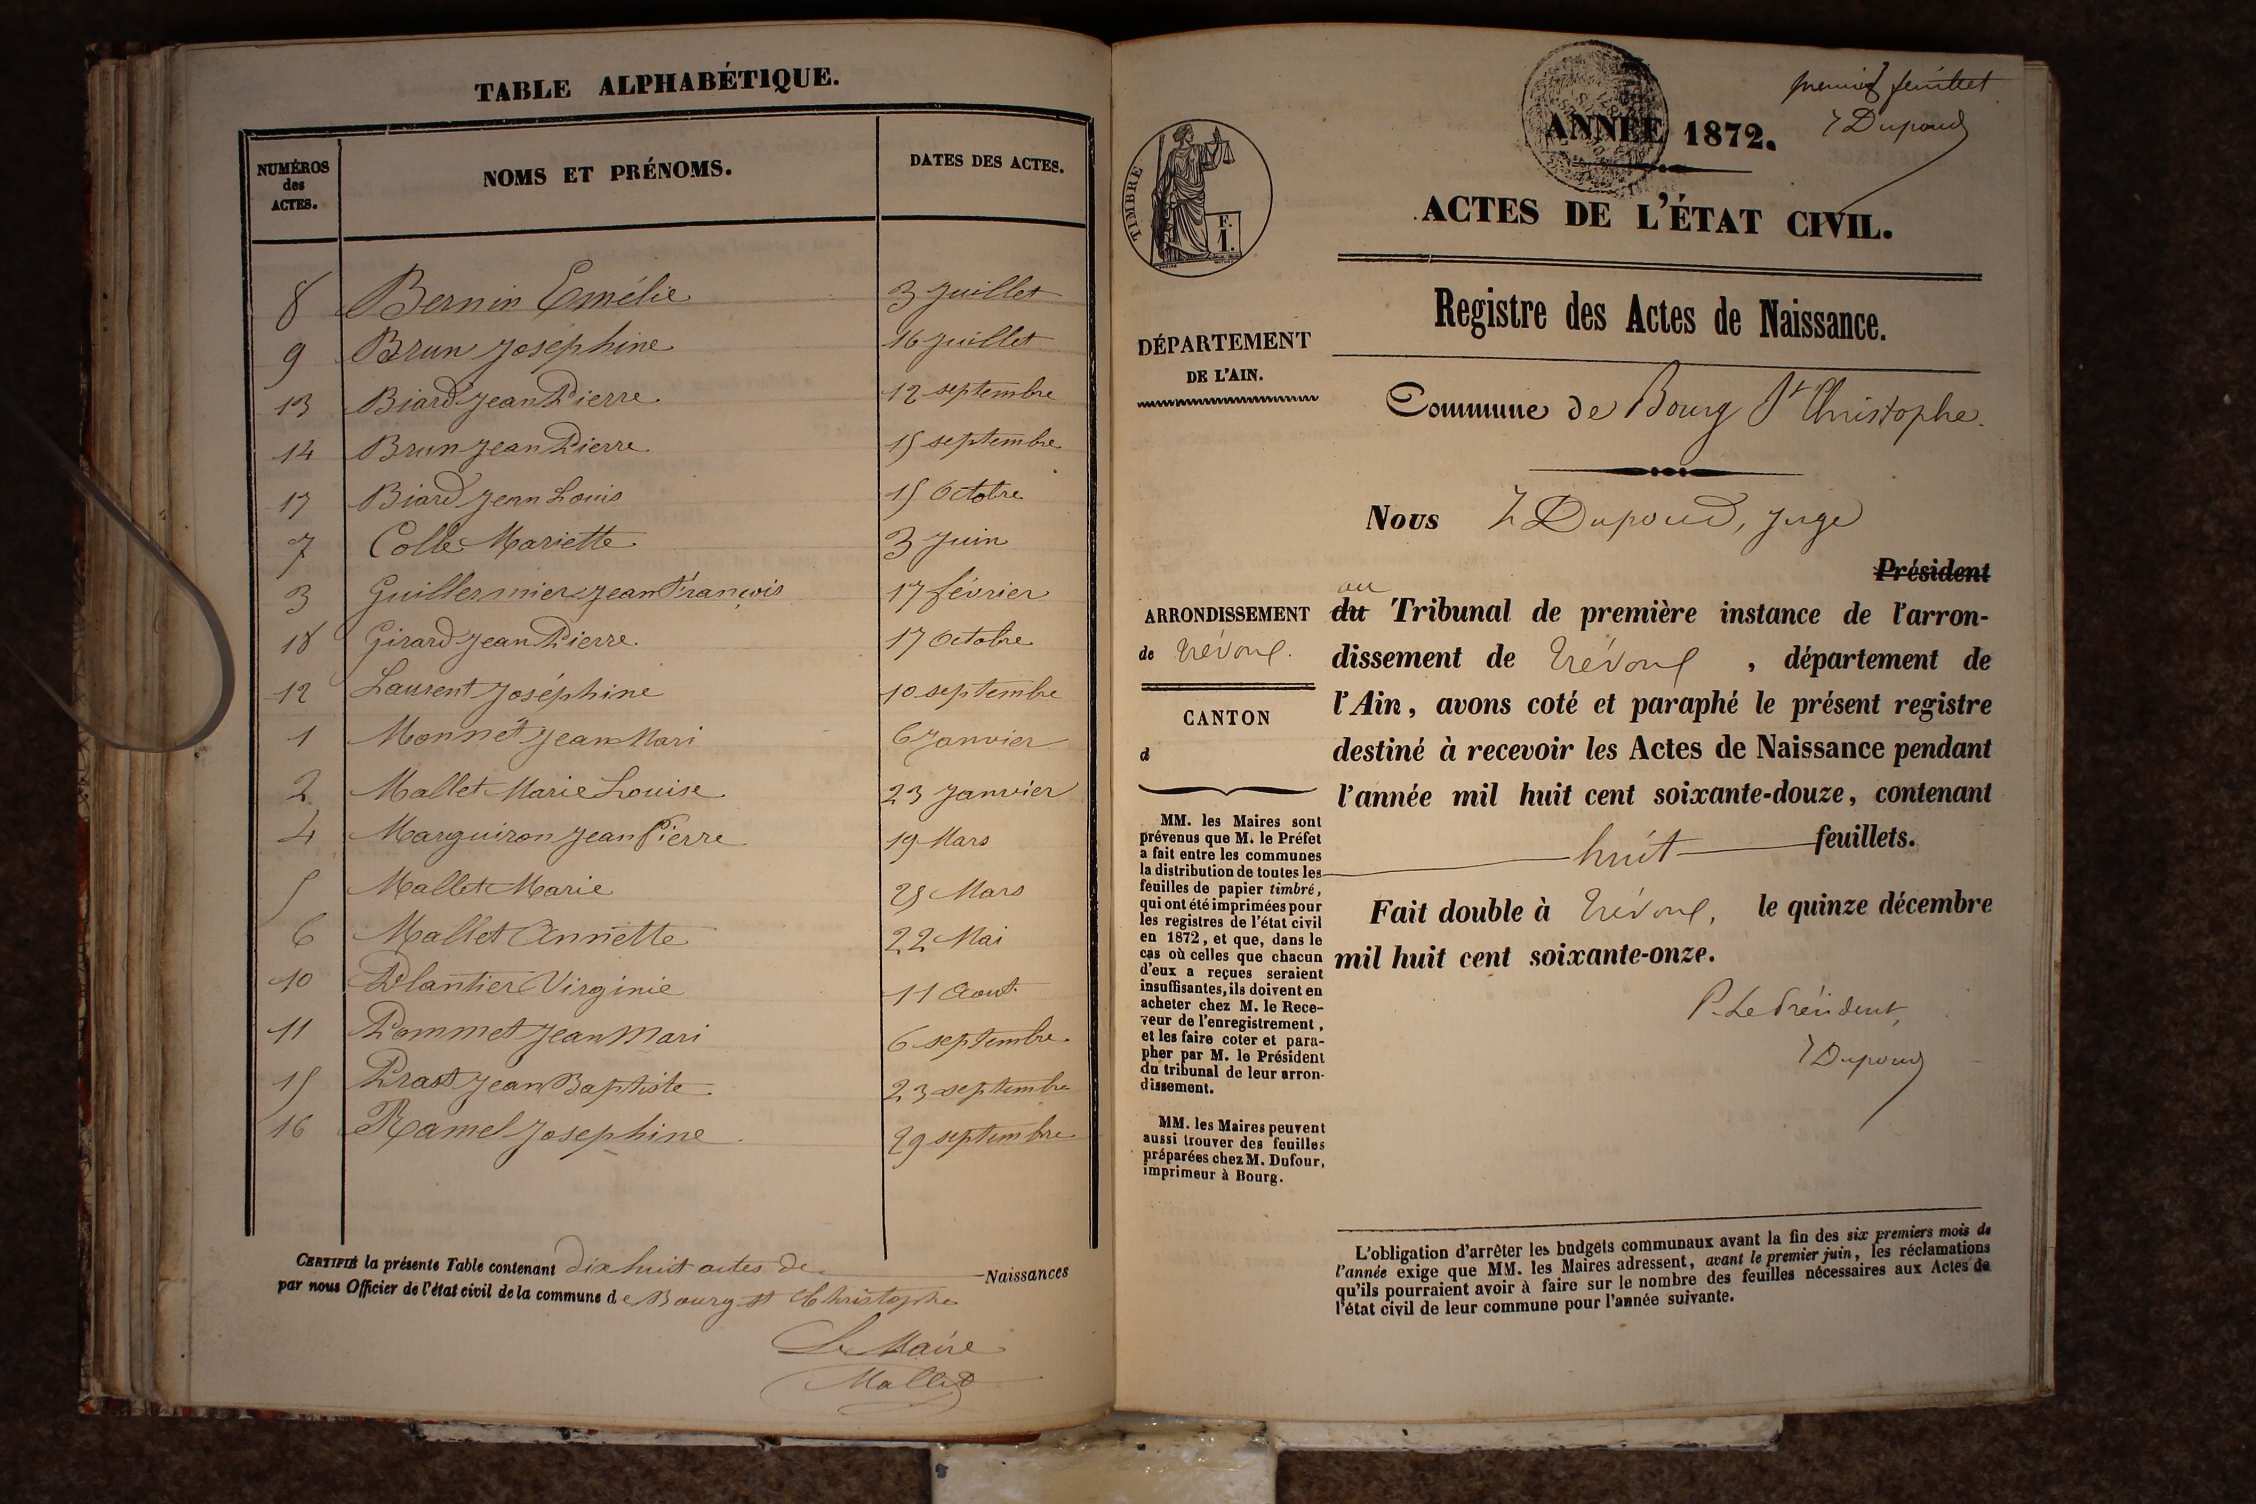 TABLE ALPHABÉTIQUE.
NUMÉROS des ACTES. NOMS ET PRÉNOMS. DATES DES ACTES.
8 Bernin Emélie 3 Juillet
9 Brun Joséphine 16 Juillet
13 Biard Jean Pierre 12 septembre
14 Brun Jean Pierre 15 septembre
17 Biard Jean Louis 15 Octobre
7 Colle Mariette 3 Juin
3 Guillermier Jean François 17 février
18 Girard Jean Pierre 17 Octobre
12 Laurent Joséphine 10 septembre
1 Monnet Jean Mari 6 Janvier
2 Mallet Marie Louise 23 Janvier
4 Marguiron Jean Pierre 19 Mars
5 Mallet Marie 25 Mars
6 Mallet Annette 22 Mai
10 Plantier Virginie 11 Aout
11 Pommet Jean Mari 6 septembre
15 Prast Jean Baptiste 23 septembre
16 Ramel Josephine 29 septembre
CERTIFIÉ la présente Table contenant dix huit actes de Naissances
par nous Officier de l'état civil de la commune de Bourg St Christophe
Le Maire
Mallet
premier feuillet
Dupoud
ANNÉE 1872.
TIMBRE
F.
1.
ACTES DE L'ÉTAT CIVIL.
Registre des Actes de Naissance.
DÉPARTEMENT
DE L'AIN.
Commune de Bourg St Christophe.
Nous Dupoud, juge
Président
ARRONDISSEMENT
de Trévoux.
CANTON
d
MM. les Maires sont
prévenus que M. le Préfet
a fait entre les communes
la distribution de toutes les
feuilles de papier timbré,
qui ont été imprimées pour
les registres de l'état civil
en 1872, et que, dans le
cas où celles que chacun
d'eux a reçues seraient
insuffisantes, ils doivent en
acheter chez M. le Rece-
veur de l'enregistrement,
et les faire coter et para-
pher par M. le Président
du tribunal de leur arron-
dissement.
MM. les Maires peuvent
aussi trouver des feuilles
préparées chez M. Dufour,
imprimeur à Bourg.
au
du Tribunal de première instance de l'arron-
dissement de Trévoux, département de
l'Ain, avons coté et paraphé le présent registre
destiné à recevoir les Actes de Naissance pendant
l'année mil huit cent soixante-douze, contenant
huit feuillets.
Fait double à Trévoux, le quinze décembre
mil huit cent soixante-onze.
P. Le Président,
Dupoud
L'obligation d'arrêter les budgets communaux avant la fin des six premiers mois de
l'année exige que MM. les Maires adressent, avant le premier juin, les réclamations
qu'ils pourraient avoir à faire sur le nombre des feuilles nécessaires aux Actes de
l'état civil de leur commune pour l'année suivante.